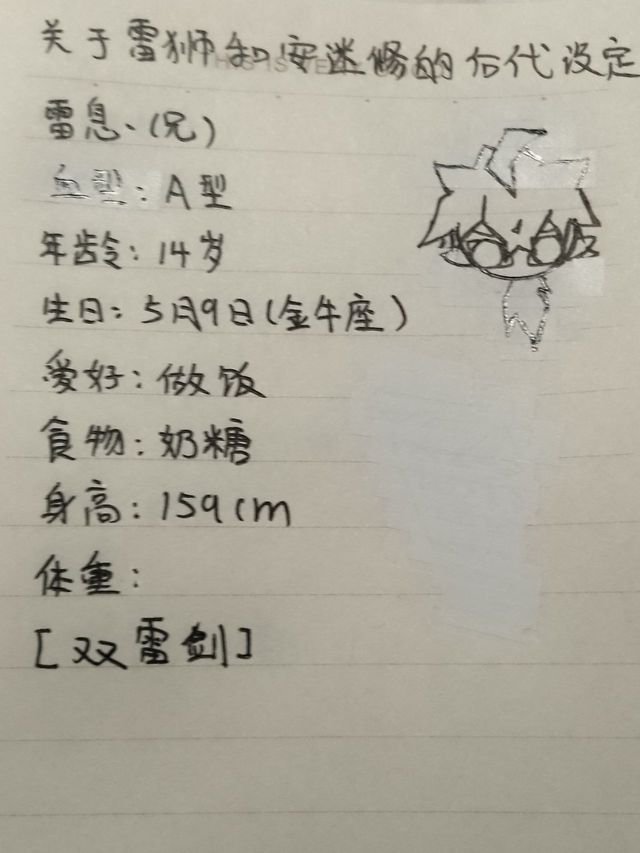 关于雷狮和安迷修的后代设定
雷息、(兄)
血型：A型
年龄：14岁
生日：5月9日(金牛座)
爱好：做饭
食物：奶糖
身高：159cm
体重：
[双雷剑]